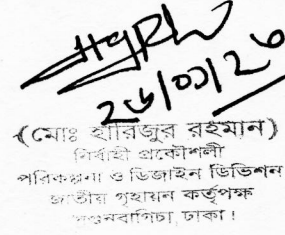 ২৬/০১/২৩
(মোঃ হারিজুর রহমান)
নির্বাহী প্রকৌশলী
পরিকল্পনা ও ডিজাইন ডিভিশন
জাতীয় গৃহায়ন কর্তৃপক্ষ
সেগুনবাগিচা, ঢাকা।